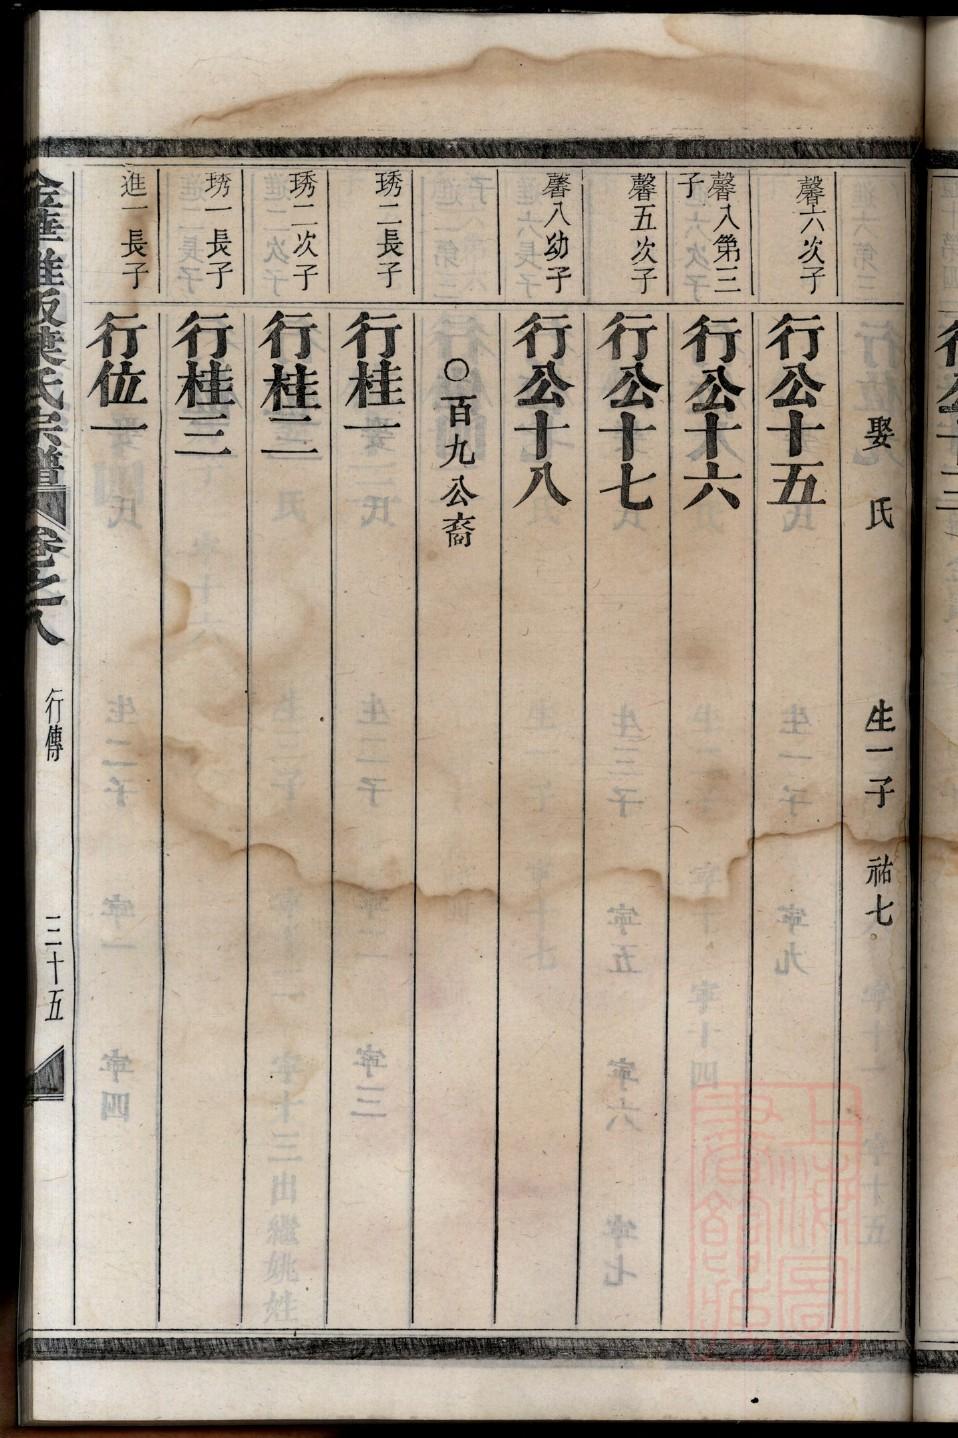 娶 氏 生一子 祐七
馨六次子 行公十五
馨八第三子 行公十六
馨五次子 行公十七
馨八幼子 行公十八
○百九公裔
琇二長子 行桂一
琇二次子 行桂二
琇一長子 行桂三
進一長子 行位一
葉氏宗譜 卷之八 行傳 三十五